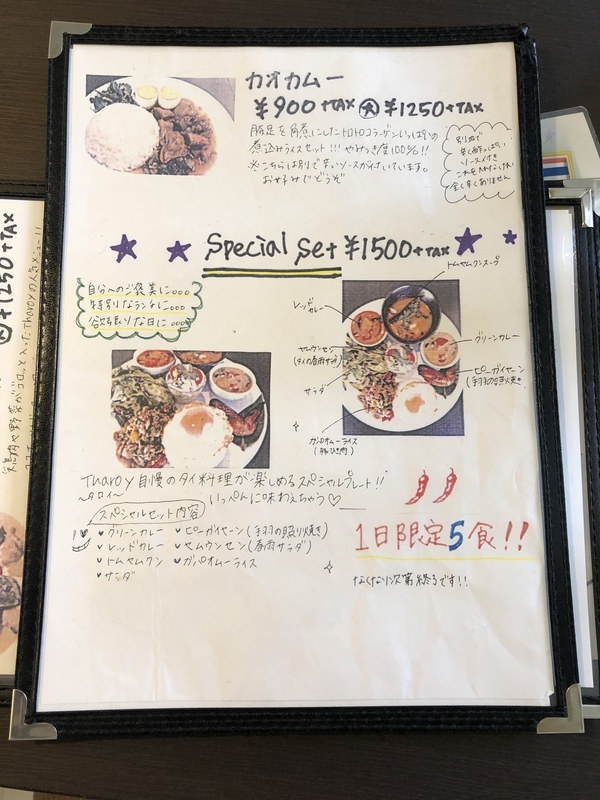 カオカムー
¥900+TAX 大 ¥1250+TAX
豚足を角煮にしたトロトロコラーゲンいっぱいの
煮込みライスセット!!! やみつき度100%!!
※こちらは別で辛いソースが付いています。
お好みでどうぞ
別皿で
辛く酸っぱい
ソース付き
これを入れない
全く辛くありません
Special Set ¥1500+TAX
自分へのご褒美に。。。
特別なランチに。。。
欲張りな日に。。。
トムヤムクンスープ
レッドカレー
グリーンカレー
ヤムウンセン
(タイの春雨サラダ)
ピーガイヤーン
(手羽の照り焼き)
サラダ
ガパオムーライス
(豚ひき肉)
Tharoy自慢のタイ料理が楽しめるスペシャルプレート!!
〜タロイ〜
いっぺんに味わえちゃう♡
スペシャルセット内容
グリーンカレー
ピーガイヤーン(手羽の照り焼き)
レッドカレー
ヤムウンセン(春雨サラダ)
トムヤムクン
ガパオムーライス
サラダ
1日限定5食!!
なくなり次第終了です!!
大 ¥1250+TAX